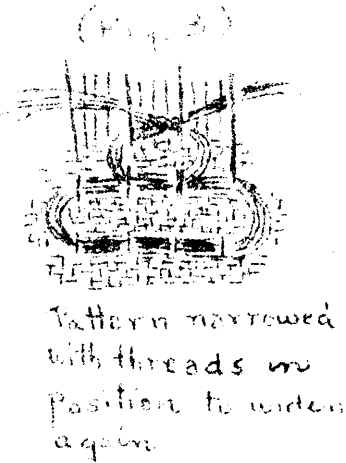 (Fig. 3)
Pattern narrowed
with threads in
position to widen
again